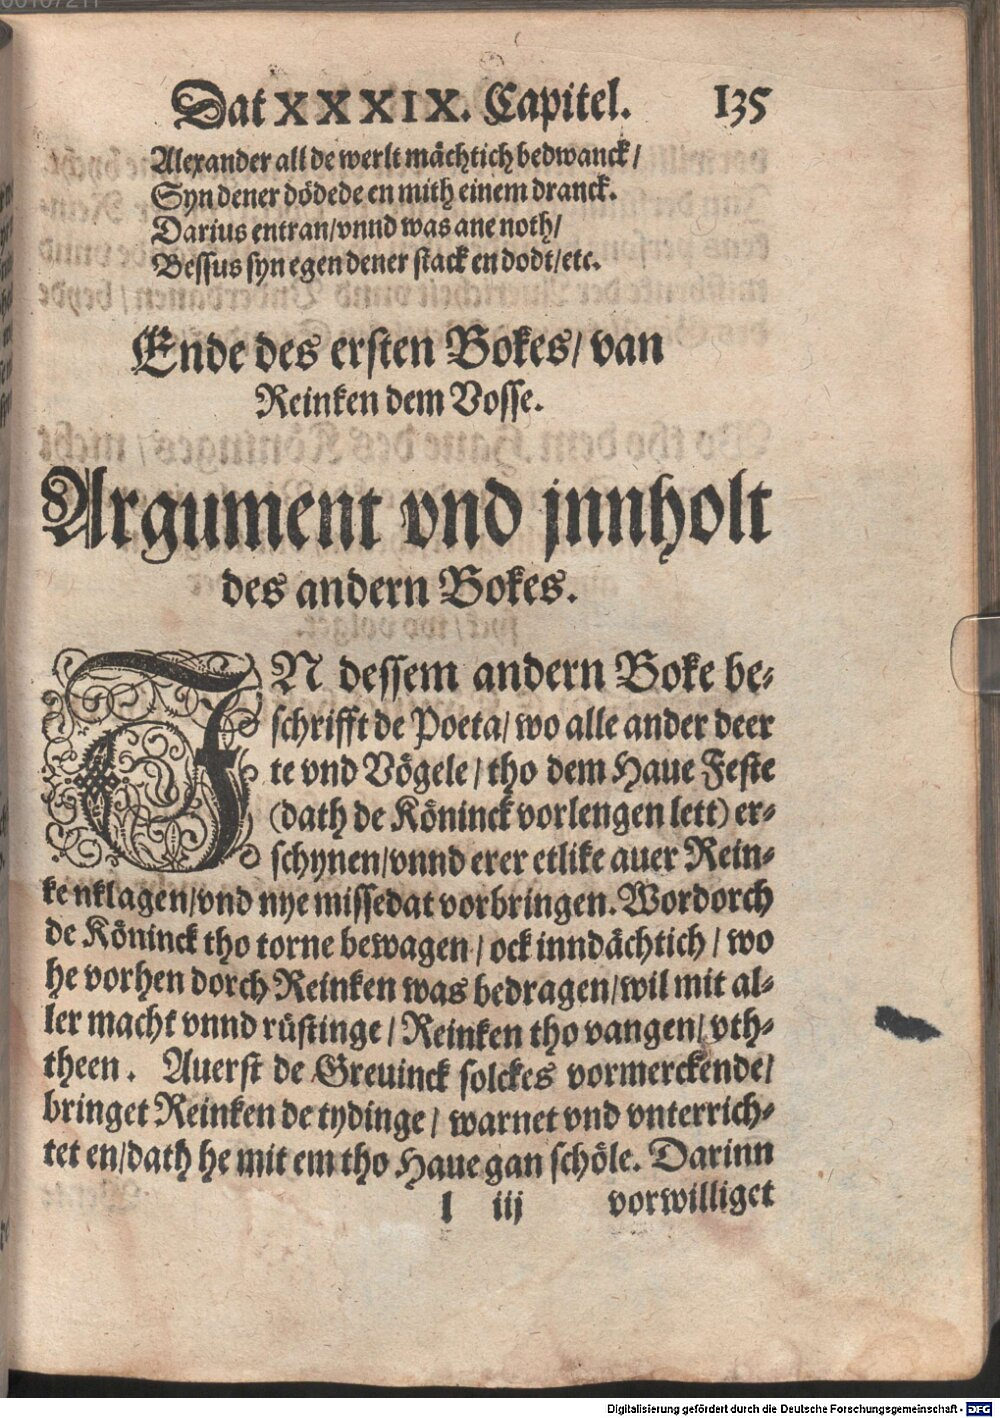 Dat XXXIX. Capitel. 135
Alexander all de werlt mächtich bedwanck/
Syn dener dödede en mith einem dranck.
Darius entran/vnnd was ane noth/
Bessus syn egen dener stack en dodt/etc.
Ende des ersten Bokes/ van
Reinken dem Vosse.
Argument vnd jnnholt
des andern Bokes.
IN dessem andern Boke be-
schrifft de Poeta/ wo alle ander deer
te vnd Vögele/ tho dem Haue Feste
(dath de Köninck vorlengen lett) er-
schynen/vnnd erer etlike auer Rein-
ke nklagen/vnd nye missedat vorbringen. Wordorch
de Köninck tho torne bewagen/ ock inndächtich/ wo
he vorhen dorch Reinken was bedragen/wil mit al-
ler macht vnnd rüstinge/ Reinken tho vangen/ vth-
theen. Auerst de Greuinck solckes vormerckende/
bringet Reinken de tydinge/ warnet vnd vnterrich-
tet en/dath he mit em tho Haue gan schöle. Darinn
l iij vorwilliget
Digitalisierung gefördert durch die Deutsche Forschungsgemeinschaft - DFG